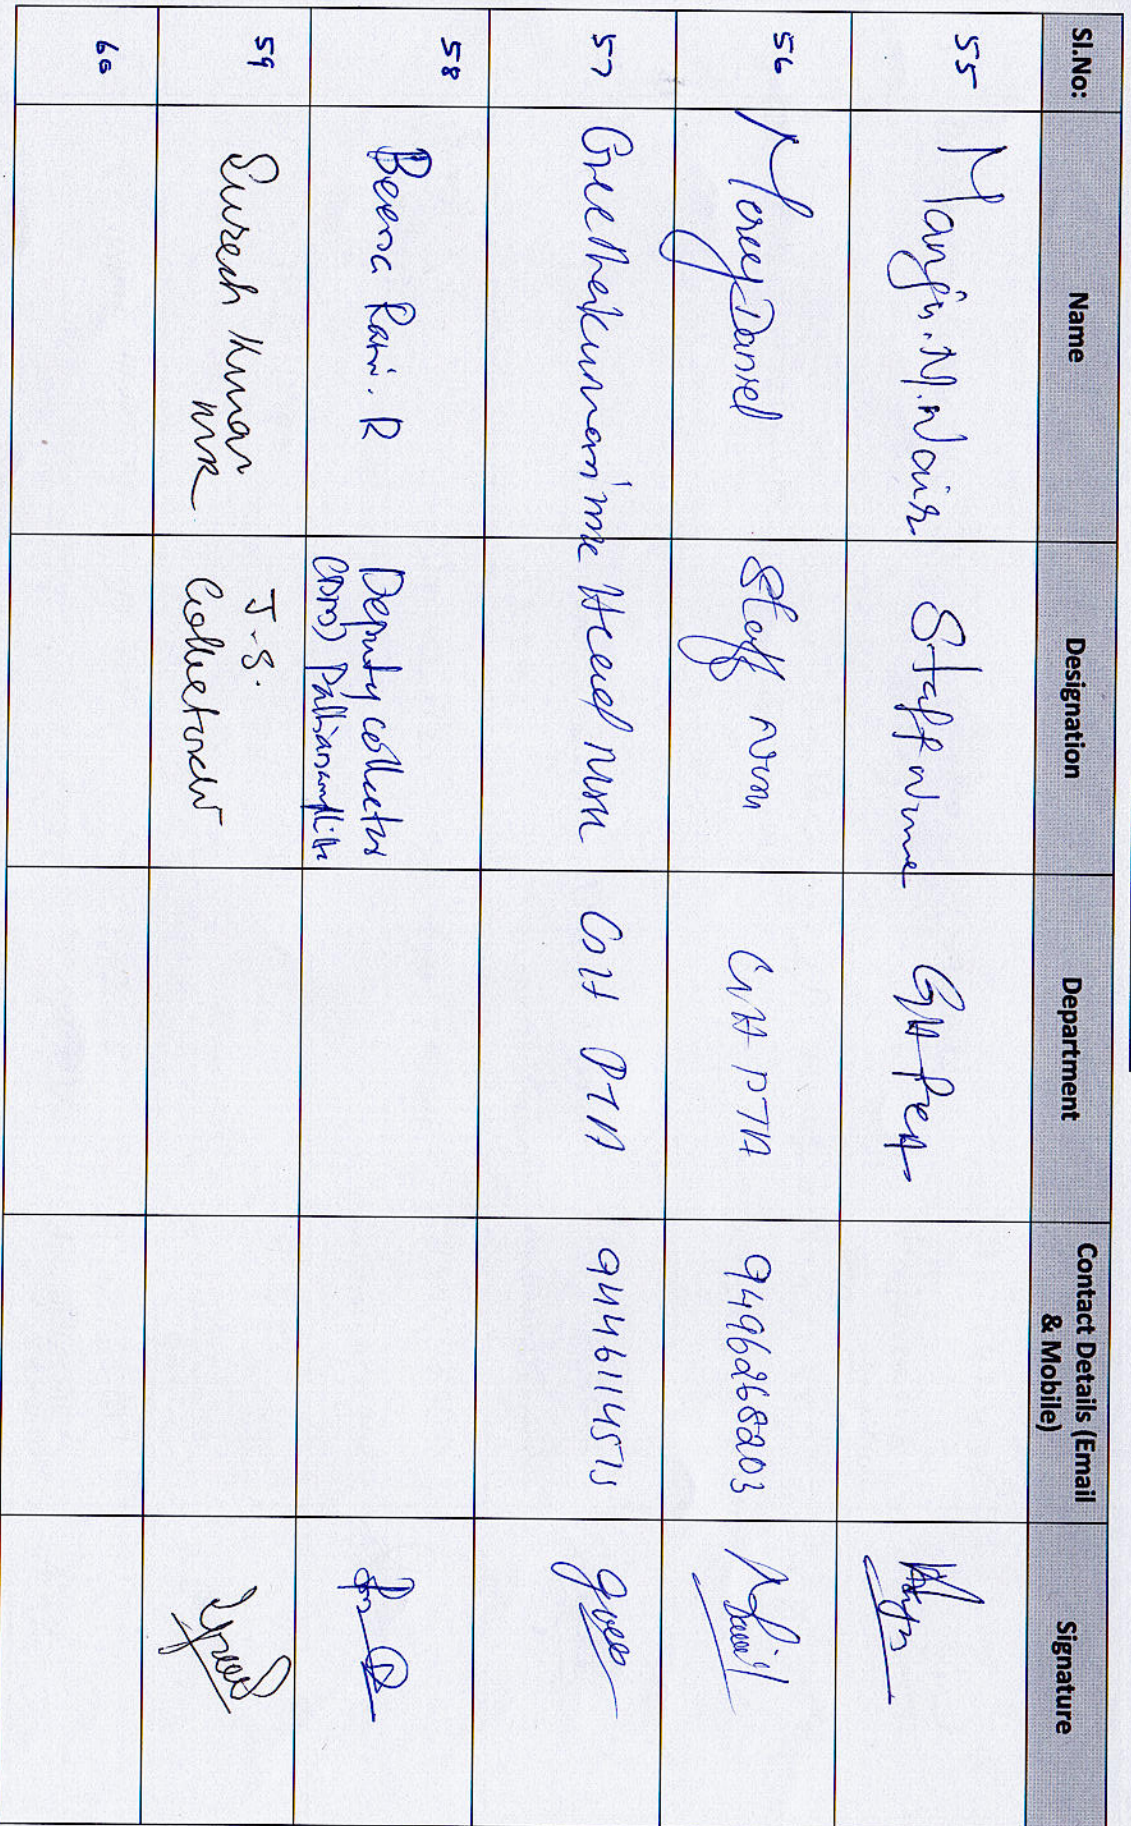 Sl.No: Name Designation Department Contact Details (Email & Mobile) Signature
55 Manju.M.Nair Staff Nurse GH PTA
56 Mercy Daniel Staff Nurse GH PTA 9496268203
57 Geethakumari Head Nurse GH PTA 9446114575
58 Beena Rani. R Deputy collector
(DM) Pathanamthitta
59 Suresh Kumar J.S.
MK Collectorate
60